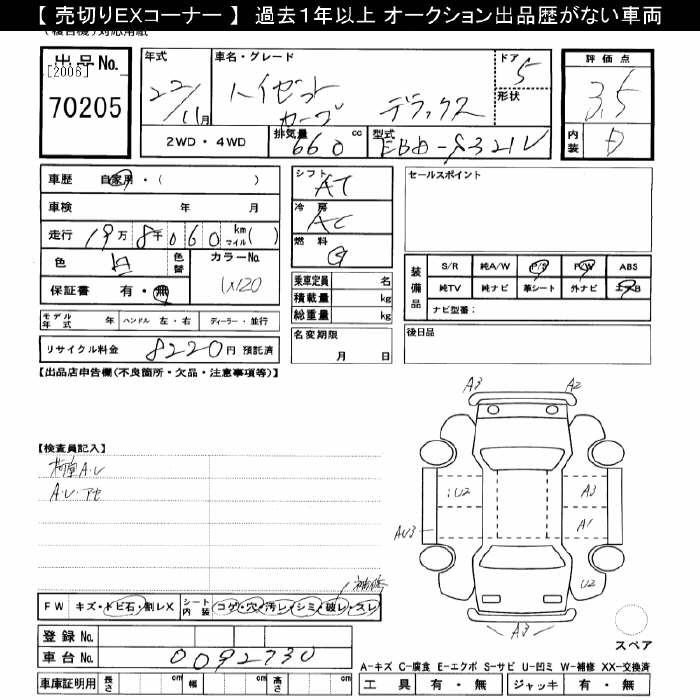 【 売切りEXコーナー 】 過去１年以上 オークション出品歴がない車両
出品No.
[2006]
70205
年式
22/11月
車名・グレード
ハイゼット
カーゴ デラックス
ドア
5
形状
評価点
3.5
内装
D
2WD・4WD
排気量
660 cc
型式
EBD-S321V
車歴 自家用・( )
車検 年 月
走行 19万 8千 060 km マイル( )
色 白
色替
カラーNo.
W120
保証書 有・無
モデル年式 年 ハンドル 左・右 ディーラー・並行
リサイクル料金 8220円 預託済
シフト
AT
冷房
AC
燃料
G
乗車定員 名
積載量 kg
総重量 kg
名変期限
月 日
セールスポイント
装備品
S/R 純A/W P/S P/W ABS
純TV 純ナビ 革シート 外ナビ エアB
ナビ型番：
後日品
【出品店申告欄(不良箇所・欠品・注意事項等)】
【検査員記入】
A・U
A・U・アセ
A3 A2
U2 A3
AU3 A1
U2
A3
補修
FW キズ・トビ石・割レX シート内装 コゲ・穴・汚レ・シミ・破レ・スレ
登録No.
車台No. 0092730
車庫証明用 長さ cm 幅 cm 高さ cm
スペア
A-キズ C-腐食 E-エクボ S-サビ U-凹ミ W-補修 XX-交換済
工具 有・無 ジャッキ 有・無